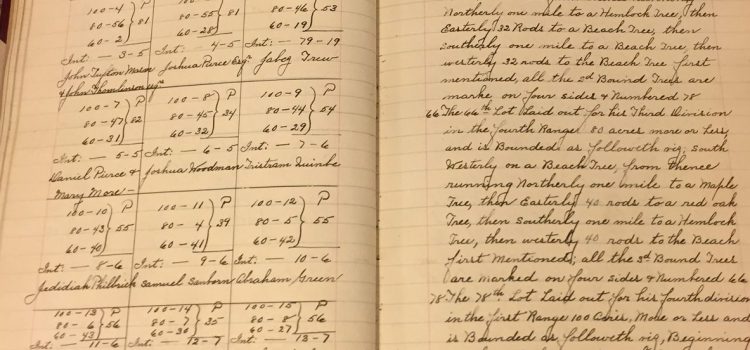 100-4 } P
80-56 } 81
60-2
Int: — 3-5
John Tufton Mason
& John Thomlinson Esqr
80-55 } 81
60-28
Int: — 4-5
Joshua Peirce Esqr
80-46 } 53
60-19
Int: — 79-19
Jabez Trew
100-7 } P
80-47 } 82
60-31
Int: — 5-5
Daniel Pierce &
Mary More —
100-8 } P
80-45 } 34
60-32
Int: — 6-5
Joshua Woodman
100-9 } P
80-44 } 54
60-29
Int: — 7-6
Tristram Quimbe
100-10 } P
80-43 } 55
60-40
Int: — 8-6
Jedidiah Philbrick
100-11 } P
80-4 } 39
60-41
Int: — 9-6
Samuel Sanborn
100-12 } P
80-5 } 55
60-42
Int: — 10-6
Abraham Green
100-13 } P
80-6 } 56
60-43
Int: — 11-6
100-14 } P
80-7 } 35
60-30
Int: — 12-7
100-15 } P
80-8 } 56
60-27
Int: — 13-7
Northerly one mile to a Hemlock Tree, then
Easterly 32 Rods to a Beach Tree, then
Southerly one mile to a Beach Tree, then
westerly 32 rods to the Beach Tree first
mentioned, all the sd Bound Trees are
marke on four sides & Numbered 78
66 The 66th Lot Laid out for his Third Division
in the fourth Range 80 acres more or Less
and is Bounded as followeth viz; South
Westerly on a Beach Tree, from thence
running Northerly one mile to a Maple
Tree, then Easterly 40 rods to a red oak
Tree, then Southerly one mile to a Hemlock
Tree, then westerly 40 rods to the Beach
first Mentioned; all the sd Bound Trees
are marked on four sides & Numbered 66
78 The 78th Lot Laid out for his fourth division
in the first Range 100 Acres, More or Less and
is Bounded as followeth viz, Beginning